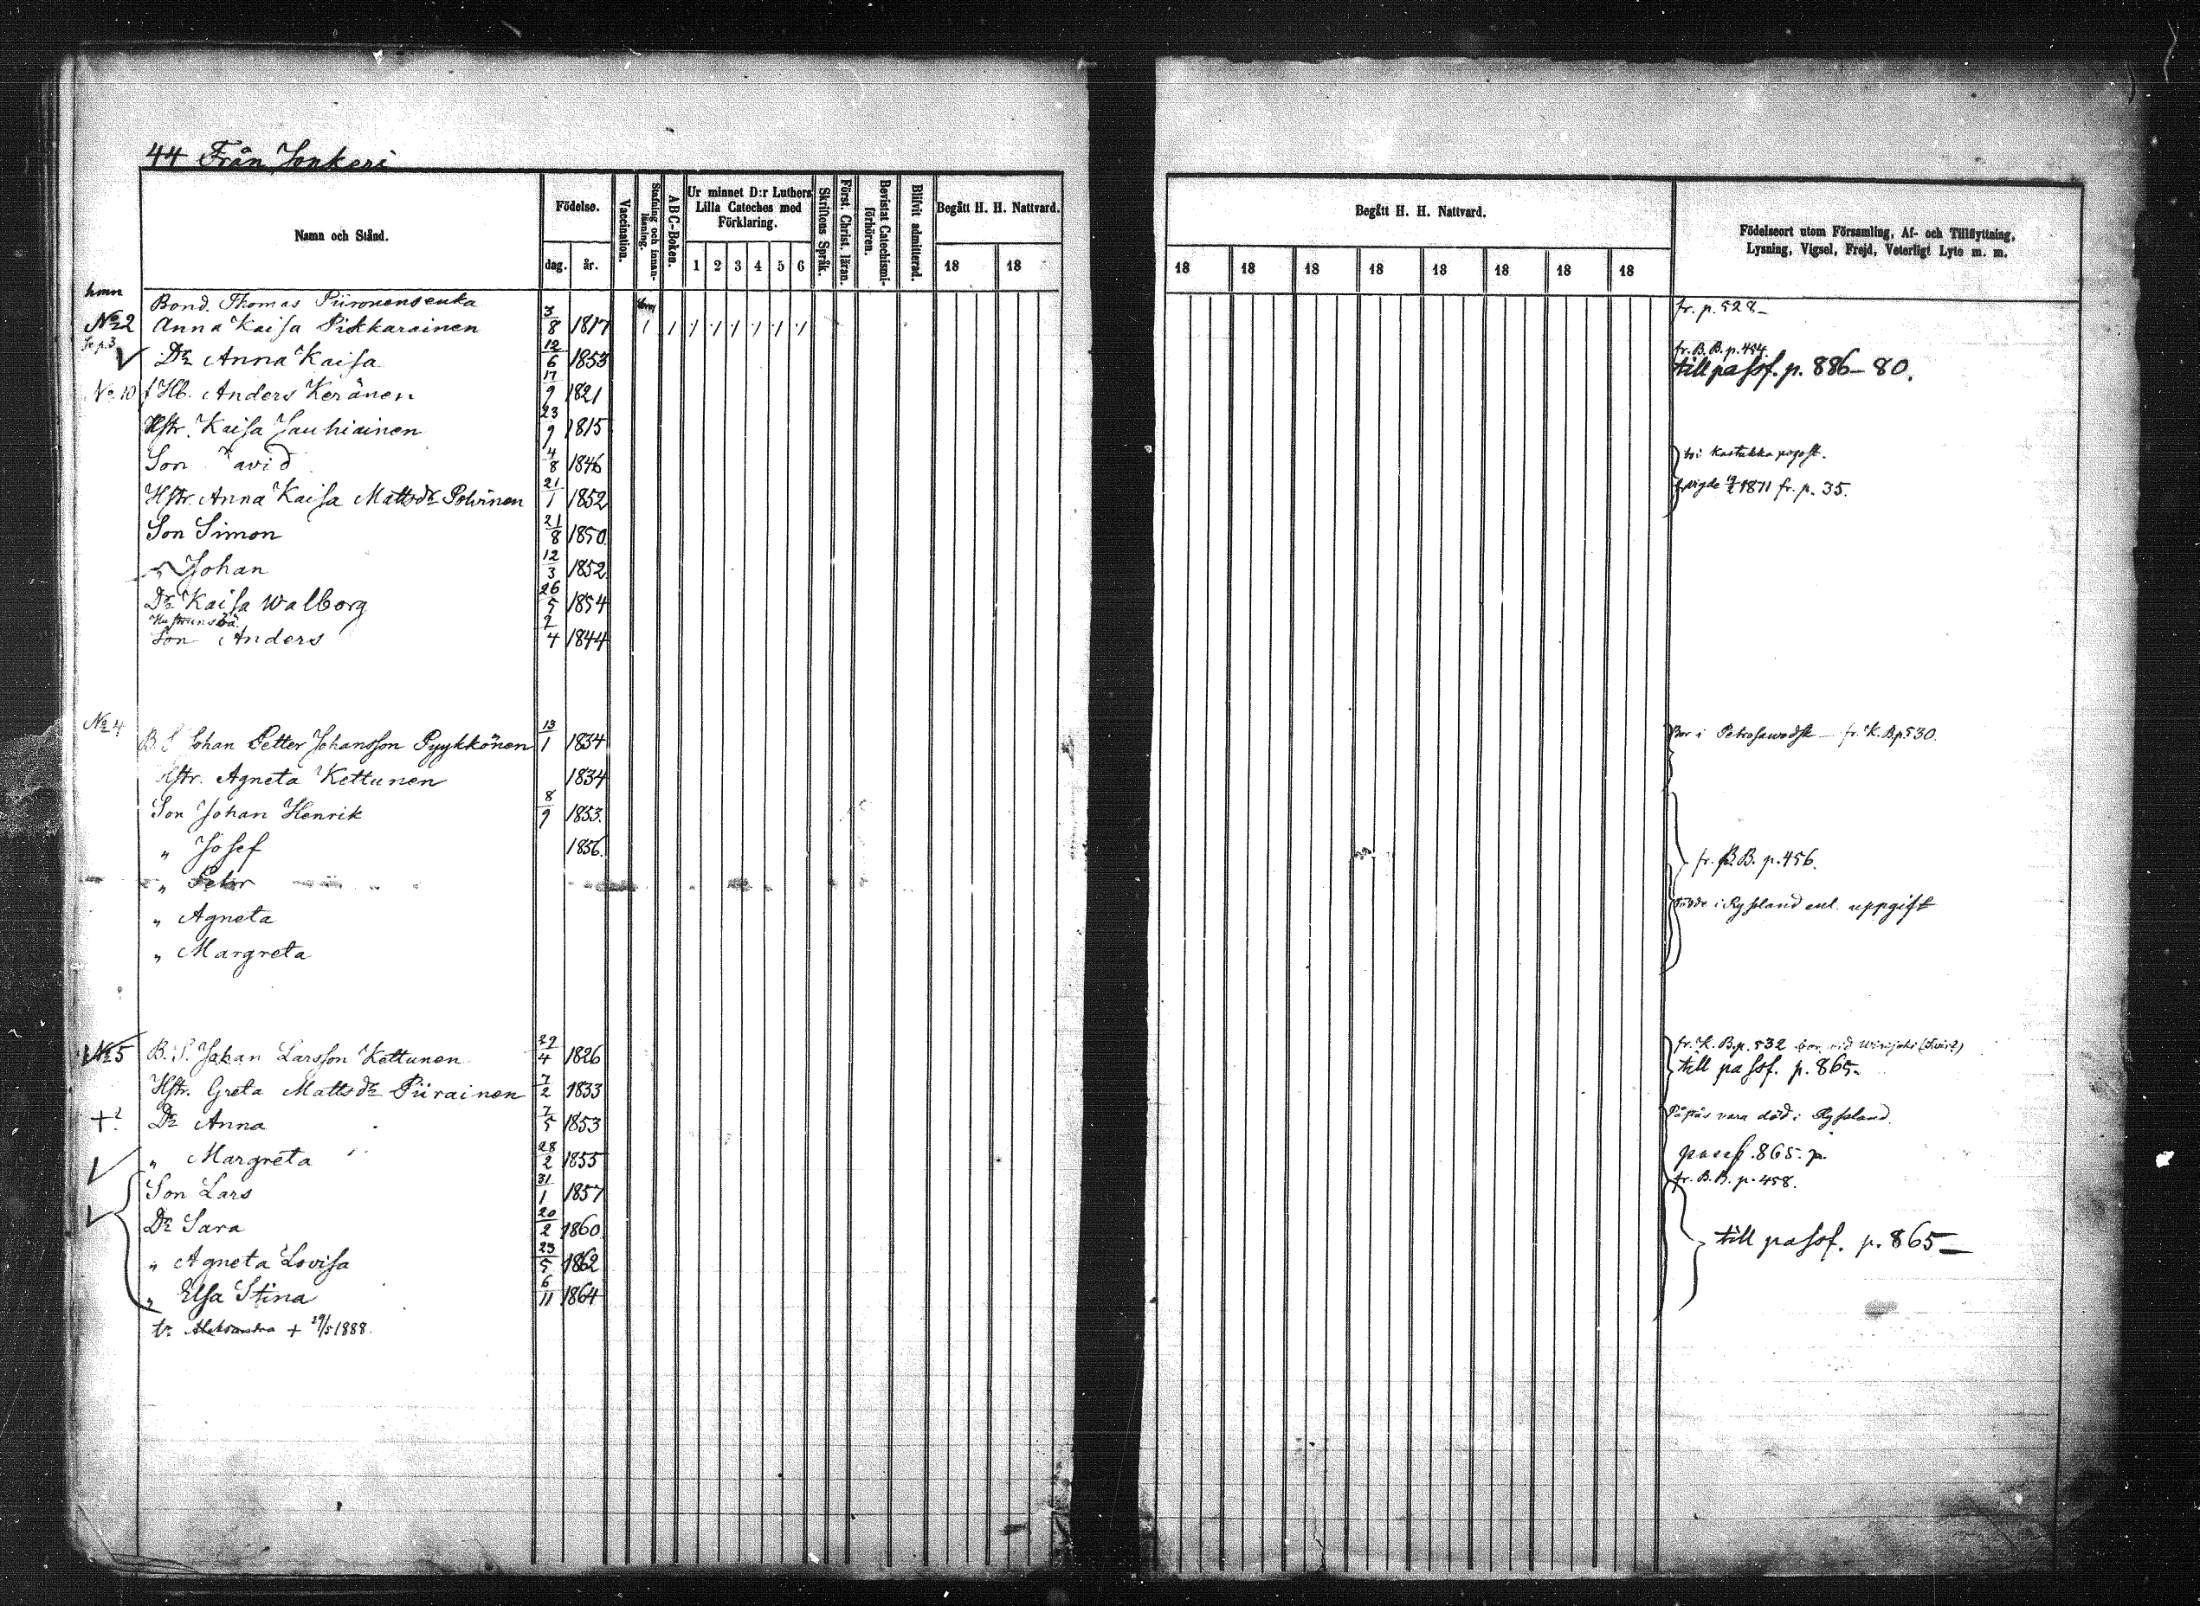 44 Från Jonkeri
Namn och Stånd.
Födelse.
dag. år.
Vaccination.
Stafning och innanläsning.
ABC-Boken.
Ur minnet D:r Luthers
Lilla Cateches med
Förklaring.
1 2 3 4 5 6
Skriftens Språk.
Först. Christ. läran.
Bevistat Catechismi-
förhören.
Blifvit admitterad.
Begått H. H. Nattvard.
18 18
Begått H. H. Nattvard.
18 18 18 18 18 18 18 18
Födelseort utom Församling, Af- och Tillflyttning,
Lysning, Vigsel, Frejd, Veterligt Lyte m. m.
Bond. Thomas Piironens enka fr. p. 528
No 2 Anna Kaisa Pikkarainen 3/8 1817 1 1 1 1 1 1 1 1
Se p. 3
Dr Anna Kaisa 12/6 1853 fr. B. B. p. 454.
till passf. p. 886-80.
No 10 Hb. Anders Keränen 17/9 1821
Hstr. Kaisa Jauhiainen 23/9 1815
Son David 4/8 1846
Hstr. Anna Kaisa Mattsdr Polvinen 21/1 1852 vigde 1871 fr. p. 35.
Son Simon 21/8 1850
" Johan 12/3 1852
Dr Kaisa Walborg 26/5 1854
Son Anders 2/4 1844
No 4
B. S. Johan Petter Johansson Pyykkönen 13/1 1834 Bor i Petrosawodsk - fr. K. B. p 530.
Hstr. Agneta Kettunen 1834
Son Johan Henrik 8/9 1853.
" Josef 1856. fr. B. B. p. 456.
" Petter
" Agneta döde i Ryssland enl. uppgift
" Margreta
No 5 B. S. Johan Larsson Kettunen 29/4 1826 fr. K. B. p. 532
till passf. p. 865.
Hstr. Greta Mattsdr Piirainen 7/2 1833
+? Dr Anna 7/5 1853 Påstås vara död i Ryssland.
" Margreta 28/2 1855 passf. 865. p.
Son Lars 31/1 1857 fr. B. B. p. 458.
Dr Sara 20/2 1860 till passf. p. 865
" Agneta Lovisa 23/5 1862
" Elsa Stina 6/11 1864
tr. Aleksandra + 29/5 1888.